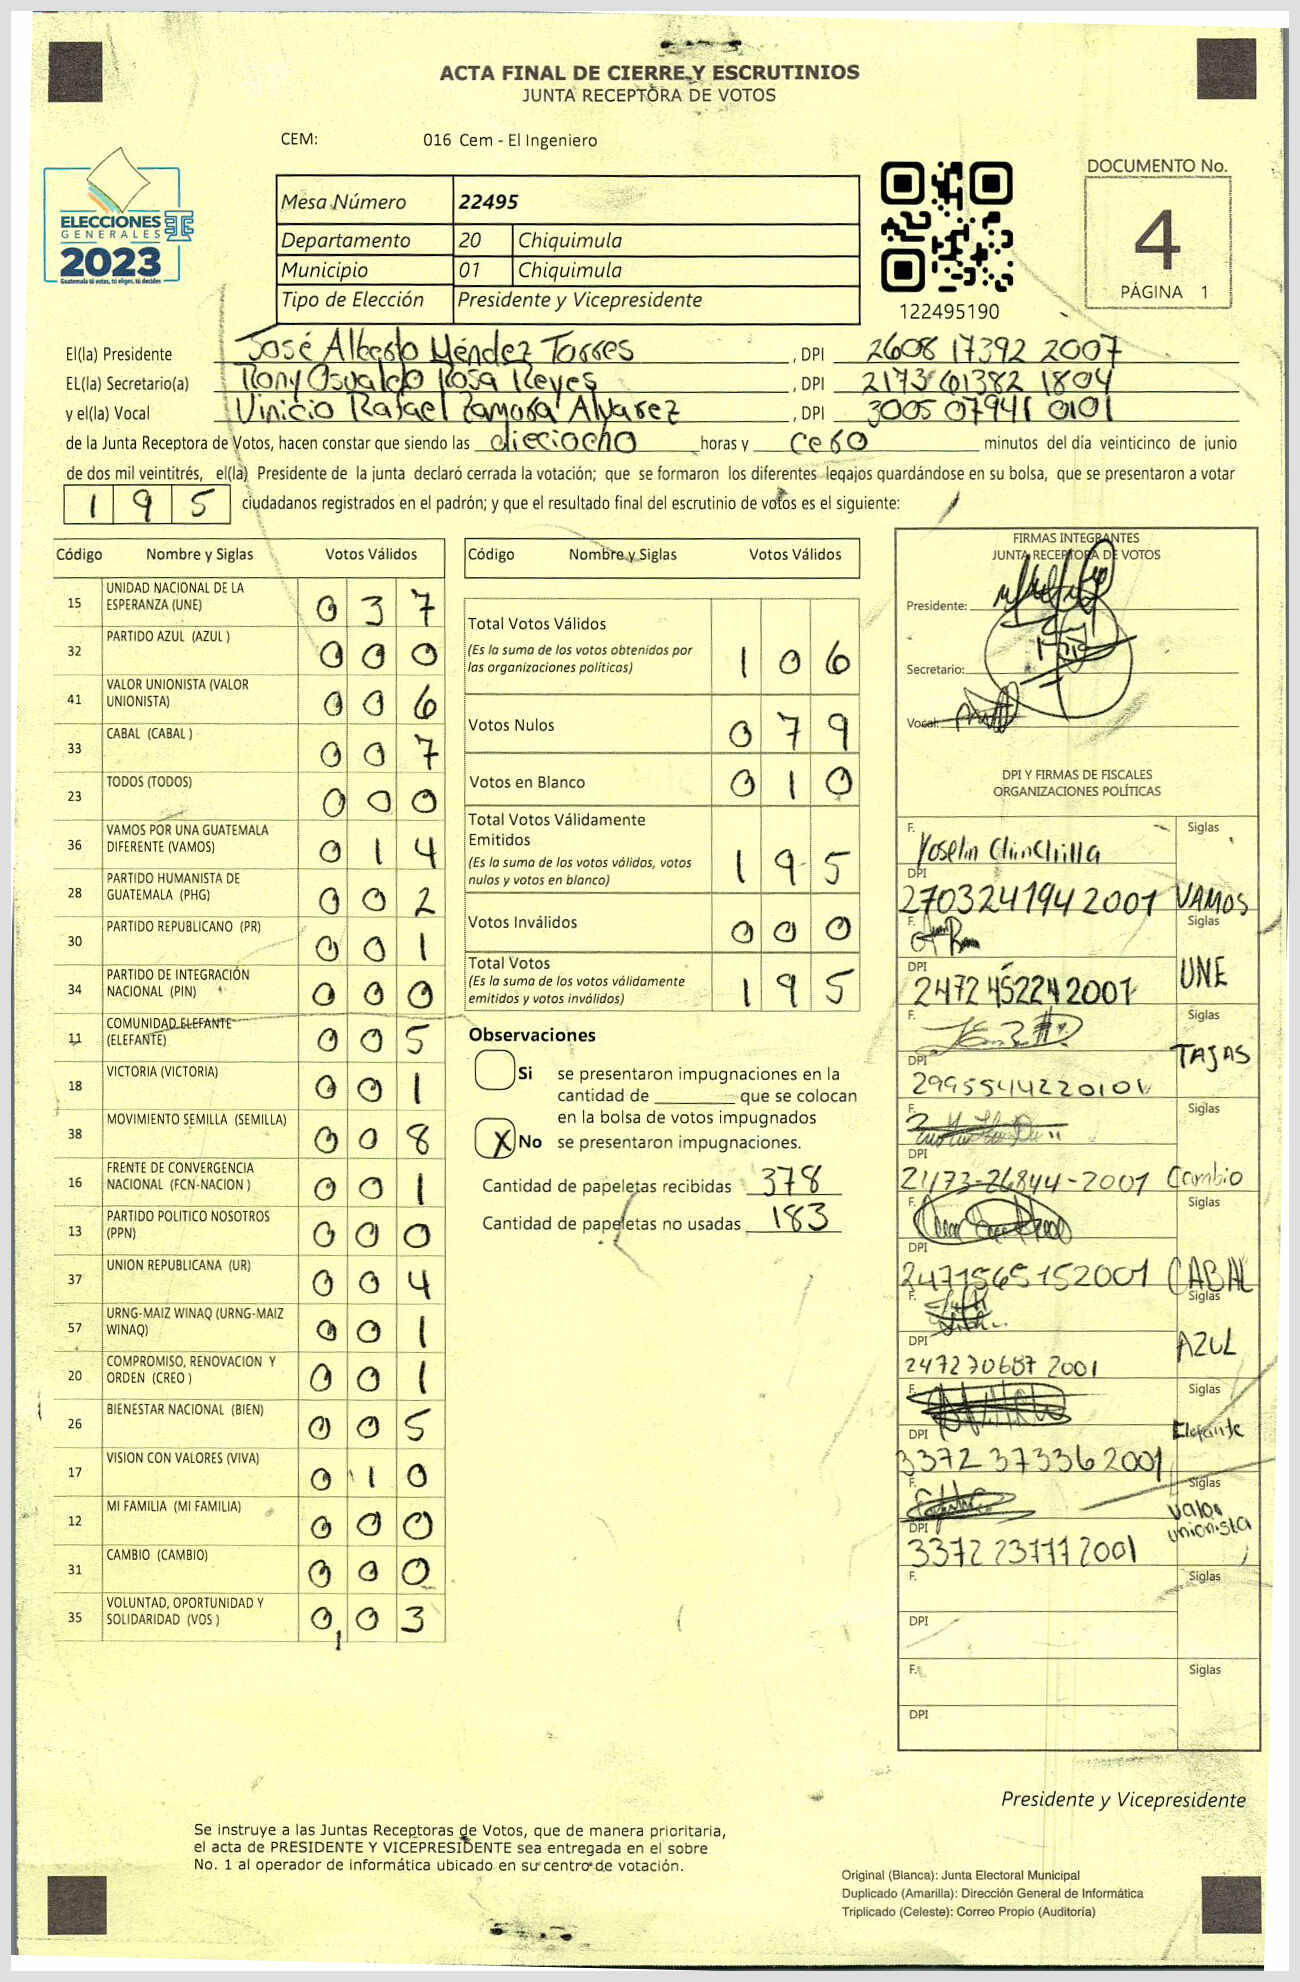 ACTA FINAL DE CIERRE Y ESCRUTINIOS
JUNTA RECEPTORA DE VOTOS
CEM: 016 Cem - El Ingeniero
ELECCIONES
GENERALES
2023
Guatemala tú votas, tú eliges, tú decides
Mesa Número 22495
Departamento 20 Chiquimula
Municipio 01 Chiquimula
Tipo de Elección Presidente y Vicepresidente
122495190
DOCUMENTO No.
4
PÁGINA 1
El(la) Presidente José Alberto Méndez Torres , DPI 2608 17392 2007
EL(la) Secretario(a) Rony Osvaldo Rosa Reyes , DPI 2173 61382 1804
y el(la) Vocal Vinicio Rafael Zamora Alvarez , DPI 3005 07941 0101
de la Junta Receptora de Votos, hacen constar que siendo las dieciocho horas y cero minutos del día veinticinco de junio
de dos mil veintitrés, el(la) Presidente de la junta declaró cerrada la votación; que se formaron los diferentes legajos guardándose en su bolsa, que se presentaron a votar
195 ciudadanos registrados en el padrón; y que el resultado final del escrutinio de votos es el siguiente:
Código Nombre y Siglas Votos Válidos
15 UNIDAD NACIONAL DE LA ESPERANZA (UNE) 037
32 PARTIDO AZUL (AZUL ) 000
41 VALOR UNIONISTA (VALOR UNIONISTA) 006
33 CABAL (CABAL ) 007
23 TODOS (TODOS) 000
36 VAMOS POR UNA GUATEMALA DIFERENTE (VAMOS) 014
28 PARTIDO HUMANISTA DE GUATEMALA (PHG) 002
30 PARTIDO REPUBLICANO (PR) 001
34 PARTIDO DE INTEGRACIÓN NACIONAL (PIN) 000
11 COMUNIDAD ELEFANTE (ELEFANTE) 005
18 VICTORIA (VICTORIA) 001
38 MOVIMIENTO SEMILLA (SEMILLA) 008
16 FRENTE DE CONVERGENCIA NACIONAL (FCN-NACION ) 001
13 PARTIDO POLITICO NOSOTROS (PPN) 000
37 UNION REPUBLICANA (UR) 004
57 URNG-MAIZ WINAQ (URNG-MAIZ WINAQ) 001
20 COMPROMISO, RENOVACION Y ORDEN (CREO ) 001
26 BIENESTAR NACIONAL (BIEN) 005
17 VISION CON VALORES (VIVA) 010
12 MI FAMILIA (MI FAMILIA) 000
31 CAMBIO (CAMBIO) 000
35 VOLUNTAD, OPORTUNIDAD Y SOLIDARIDAD (VOS ) 003
Código Nombre y Siglas Votos Válidos
Total Votos Válidos
(Es la suma de los votos obtenidos por las organizaciones políticas) 106
Votos Nulos 079
Votos en Blanco 010
Total Votos Válidamente Emitidos
(Es la suma de los votos válidos, votos nulos y votos en blanco) 195
Votos Inválidos 000
Total Votos
(Es la suma de los votos válidamente emitidos y votos inválidos) 195
Observaciones
Si se presentaron impugnaciones en la
cantidad de ________ que se colocan
en la bolsa de votos impugnados
X No se presentaron impugnaciones.
Cantidad de papeletas recibidas 378
Cantidad de papeletas no usadas 183
FIRMAS INTEGRANTES
JUNTA RECEPTORA DE VOTOS
Presidente:
Secretario:
Vocal:
DPI Y FIRMAS DE FISCALES
ORGANIZACIONES POLÍTICAS
F. Yoselin Chinchilla Siglas
DPI 2703241942001 VAMOS
F. Siglas
DPI 2472 45224 2001 UNE
F. Siglas
DPI 2995544220101 TAJAS
F. Siglas
DPI 2473-26844-2001 Cambio
F. Siglas
DPI 2471565152001 CABAL
F. Siglas
DPI 247270687 2001 AZUL
F. Siglas
DPI 3372 37336 2001 Elefante
F. Siglas
DPI 3372 23777 2001 Valor unionista
F. Siglas
DPI
F. Siglas
DPI
Presidente y Vicepresidente
Se instruye a las Juntas Receptoras de Votos, que de manera prioritaria,
el acta de PRESIDENTE Y VICEPRESIDENTE sea entregada en el sobre
No. 1 al operador de informática ubicado en su centro de votación.
Original (Blanca): Junta Electoral Municipal
Duplicado (Amarilla): Dirección General de Informática
Triplicado (Celeste): Correo Propio (Auditoría)